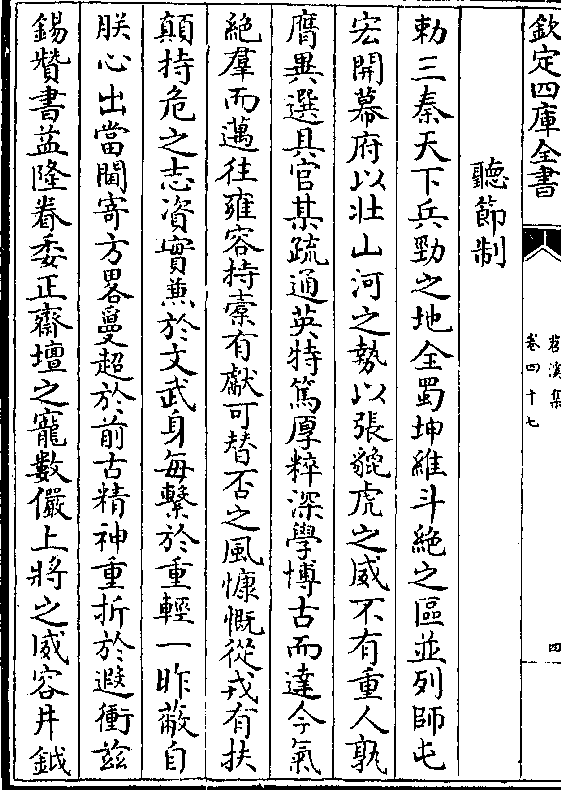 欽定四庫全書
苕溪集
卷四十七
四
聽節制
勅三秦天下兵勁之地全蜀坤維斗絶之區並列師屯
宏開幕府以壯山河之勢以張貔虎之威不有重人孰
膺異選具官某疏通英特篤厚粹深學博古而達今氣
絶羣而邁往雍容持橐有獻可替否之風慷慨從戎有扶
顛持危之志資實兼於文武身每繫於重輕一昨蔽自
朕心出當閫寄方畧夐超於前古精神重折於遐衝兹
錫贊書益隆眷委正齋壇之寵數儼上將之威容井鉞